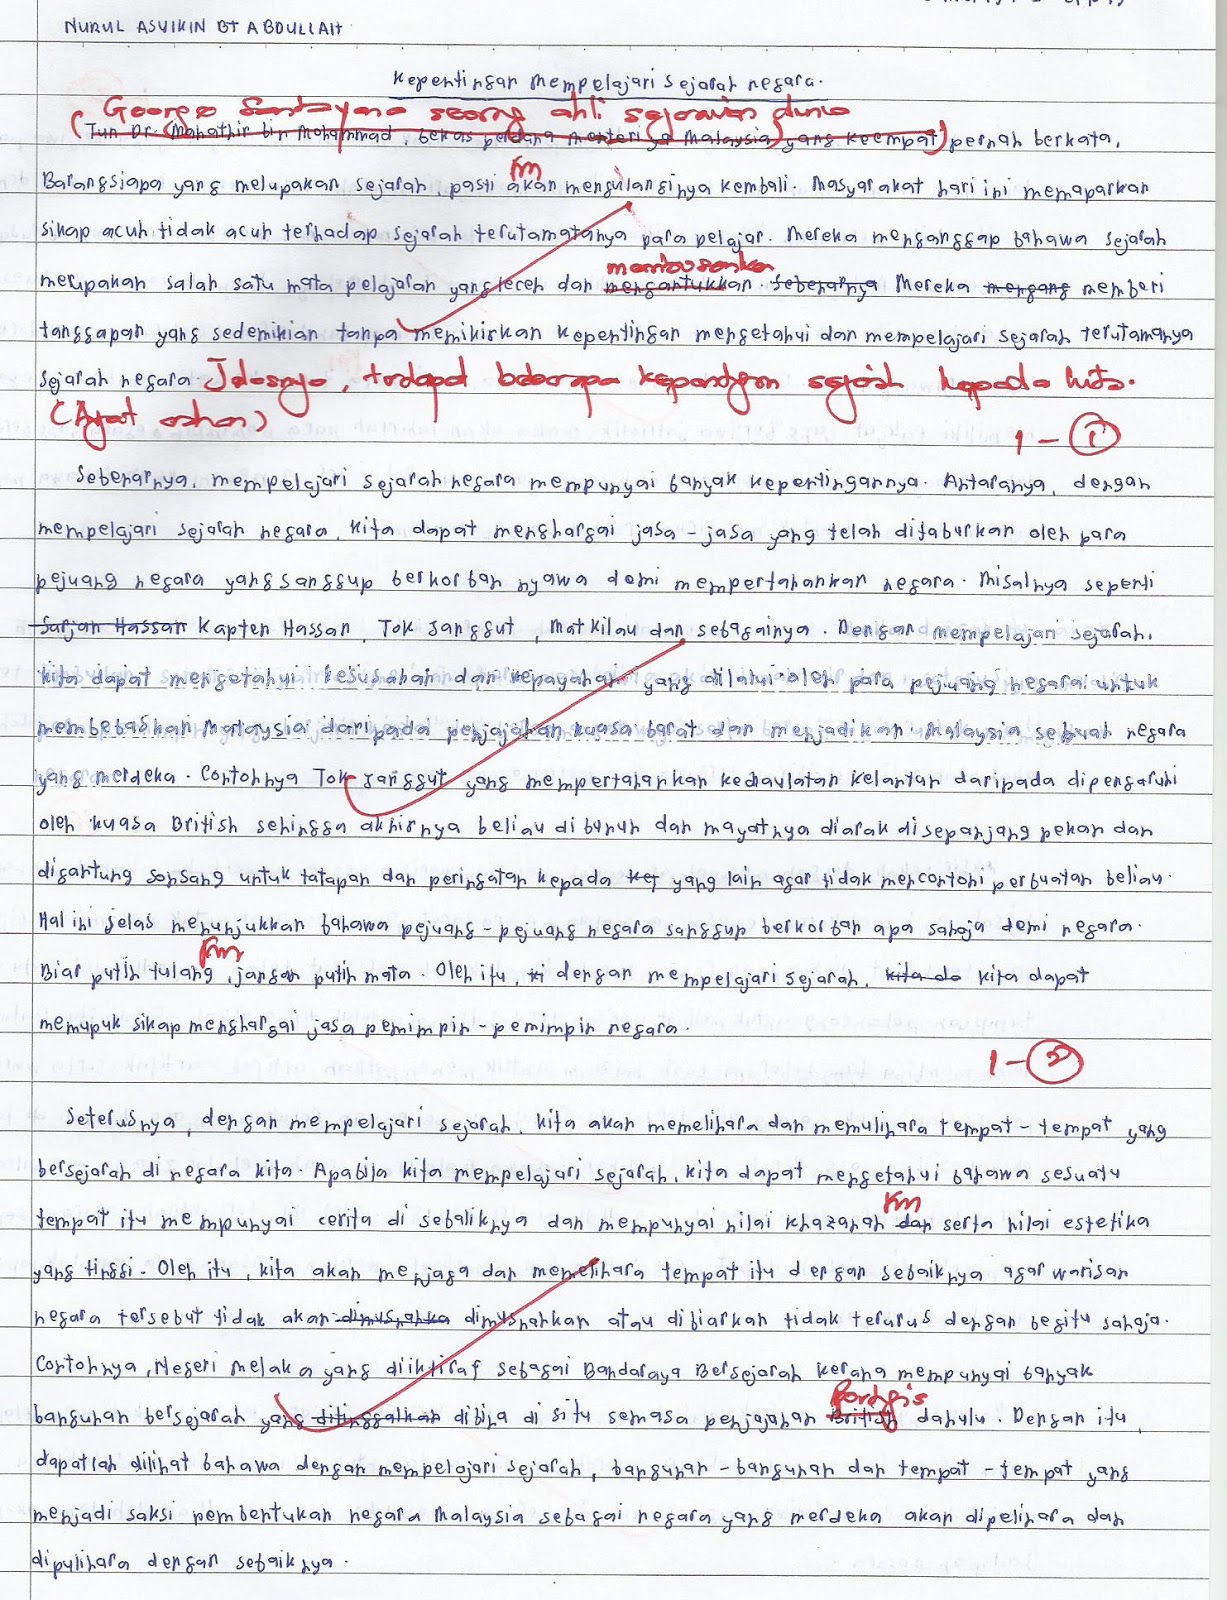 NURUL ASYIKIN BT ABDULLAH
Kepentingan mempelajari sejarah negara.
George Santayana seorang ahli sejarawan dunia
(Tun Dr. Mahathir bin Mohammad, bekas perdana menteri Malaysia yang keempat) pernah berkata,
km
Barangsiapa yang melupakan sejarah, pasti akan mengulanginya kembali. Masyarakat hari ini memaparkan
sikap acuh tidak acuh terhadap sejarah terutamatanya para pelajar. Mereka menganggap bahawa sejarah
membosankan
merupakan salah satu mata pelajaran yang leceh dan mengantukkan. Sebenarnya Mereka mengang memberi
tanggapan yang sedemikian tanpa memikirkan kepentingan mengetahui dan mempelajari sejarah terutamanya
sejarah negara. Jelasnya, terdapat beberapa kepentingan sejarah kepada kita.
(Ayat arahan)
1 - 1
Sebenarnya, mempelajari sejarah negara mempunyai banyak kepentingannya. Antaranya, dengan
mempelajari sejarah negara, kita dapat menghargai jasa-jasa yang telah ditaburkan oleh para
pejuang negara yang sanggup berkorban nyawa demi mempertahankan negara. Misalnya seperti
Sarjan Hassan Kapten Hassan, Tok Janggut, Mat Kilau dan sebagainya. Dengan mempelajari sejarah,
kita dapat mengetahui kesusahan dan kepayahan yang dilalui oleh para pejuang negara untuk
membebaskan Malaysia daripada penjajahan kuasa barat dan menjadikan Malaysia sebuah negara
yang merdeka. Contohnya Tok Janggut yang mempertahankan kedaulatan Kelantan daripada dipengaruhi
oleh kuasa British sehingga akhirnya beliau dibunuh dan mayatnya diarak di sepanjang pekan dan
digantung songsang untuk tatapan dan peringatan kepada yang lain agar tidak mencontohi perbuatan beliau.
Hal ini jelas menunjukkan bahawa pejuang-pejuang negara sanggup berkorban apa sahaja demi negara.
km
Biar putih tulang, jangan putih mata. Oleh itu, ki dengan mempelajari sejarah, kita da kita dapat
memupuk sikap menghargai jasa pemimpin-pemimpin negara.
1 - 2
Seterusnya, dengan mempelajari sejarah, kita akan memelihara dan memulihara tempat-tempat yang
bersejarah di negara kita. Apabila kita mempelajari sejarah, kita dapat mengetahui bahawa sesuatu
km
tempat itu mempunyai cerita di sebaliknya dan mempunyai nilai khazanah dan serta nilai estetika
yang tinggi. Oleh itu, kita akan menjaga dan memelihara tempat itu dengan sebaiknya agar warisan
negara tersebut tidak akan dimusnahka dimusnahkan atau dibiarkan tidak terurus dengan begitu sahaja.
Contohnya, Negeri Melaka yang diiktiraf sebagai Bandaraya Bersejarah kerana mempunyai banyak
Portugis
bangunan bersejarah yang ditinggalkan dibina di situ semasa penjajahan British dahulu. Dengan itu,
dapatlah dilihat bahawa dengan mempelajari sejarah, bangunan-bangunan dan tempat-tempat yang
menjadi saksi pembentukan negara Malaysia sebagai negara yang merdeka akan dipelihara dan
dipulihara dengan sebaiknya.